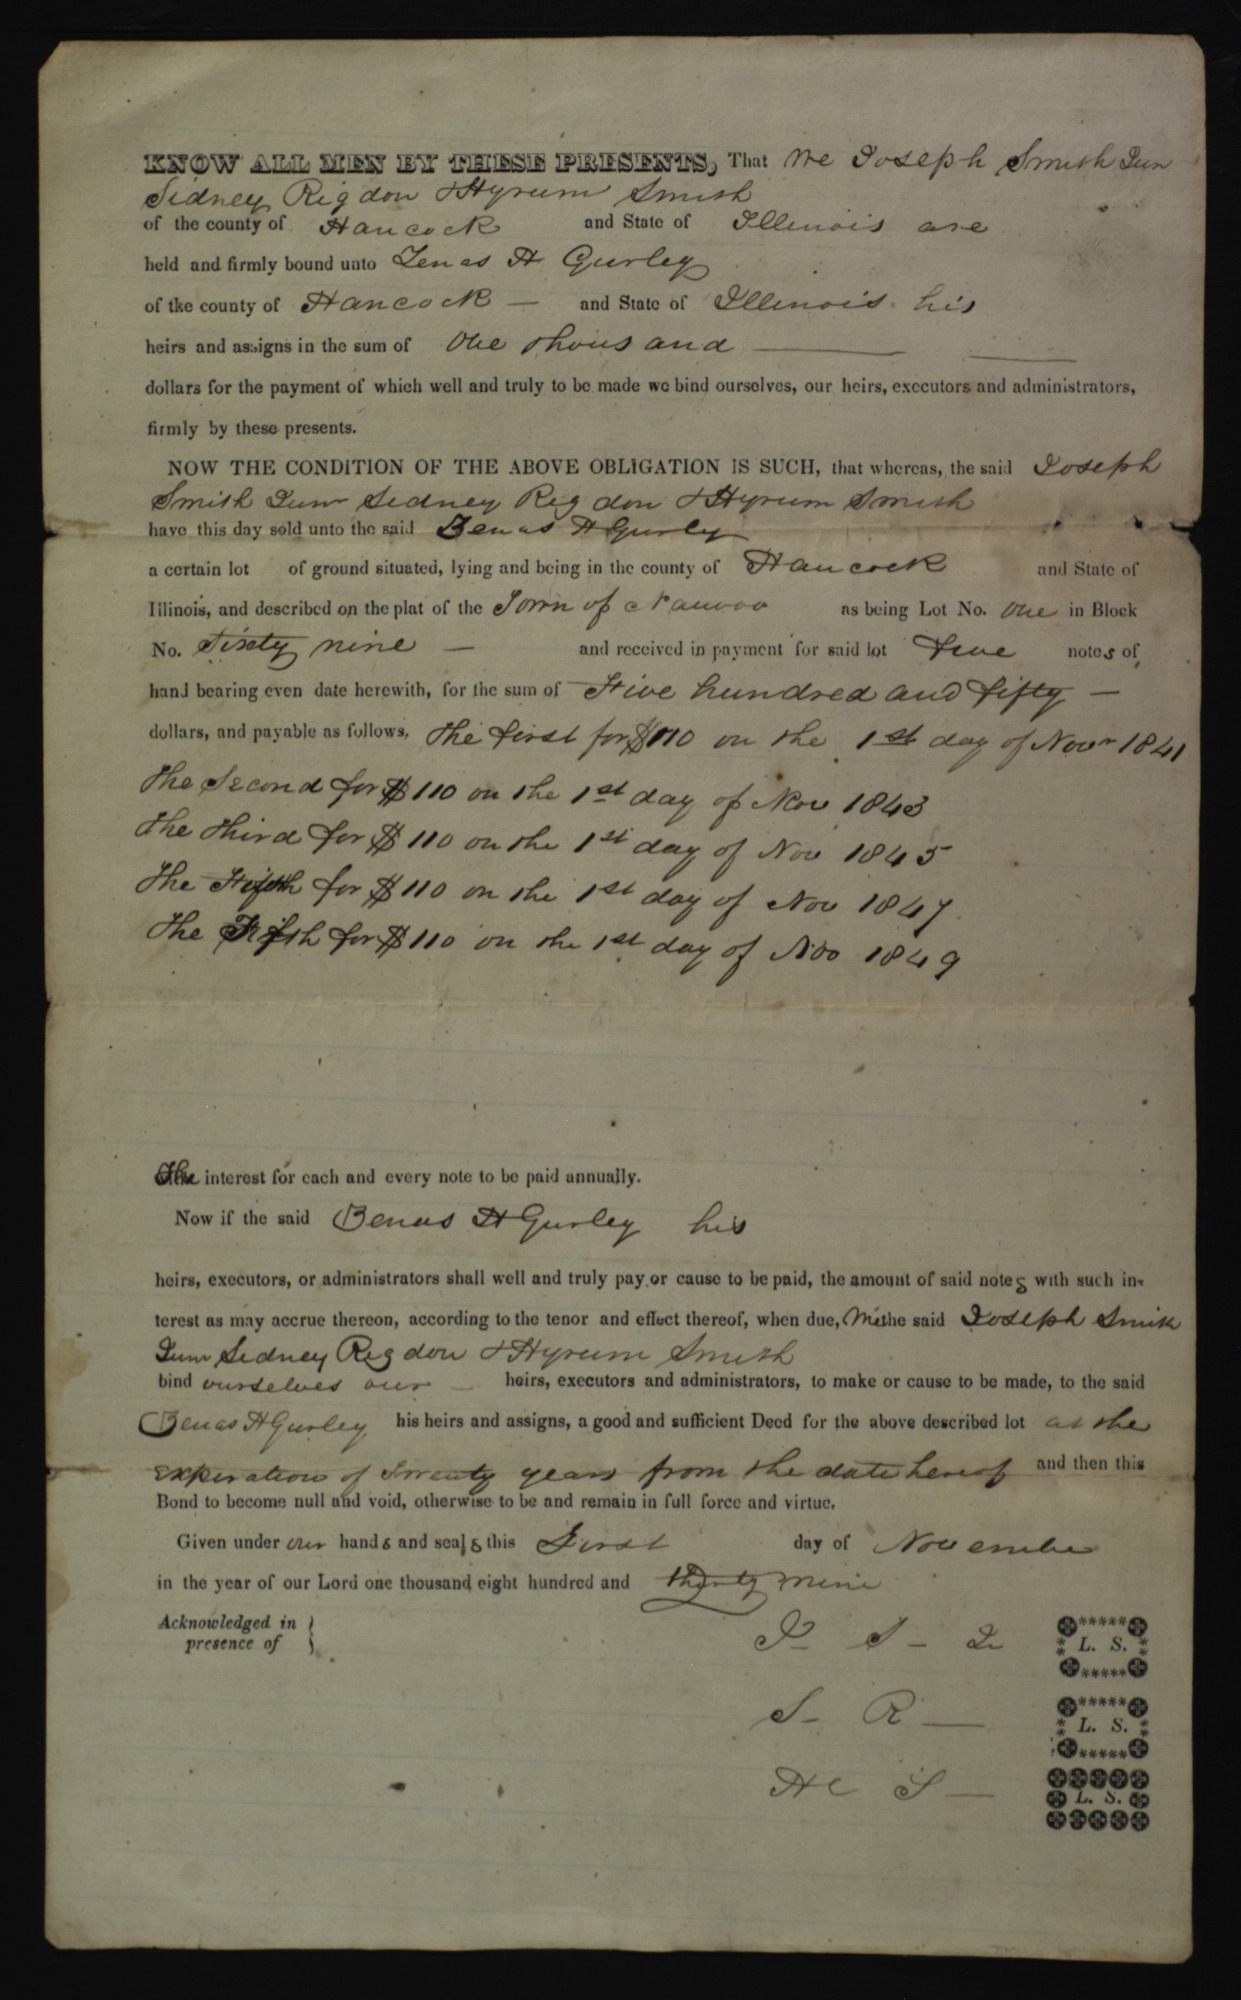 KNOW ALL MEN BY THESE PRESENTS, That We Joseph Smith Jun
Sidney Rigdon & Hyrum Smith
of the county of Hancock and State of Illinois are
held and firmly bound unto Zenas H Gurley
of the county of Hancock — and State of Illinois his
heirs and assigns in the sum of One thousand ——— ———
dollars for the payment of which well and truly to be made we bind ourselves, our heirs, executors and administrators,
firmly by these presents.
NOW THE CONDITION OF THE ABOVE OBLIGATION IS SUCH, that whereas, the said Joseph
Smith Junr Sidney Rigdon & Hyrum Smith
have this day sold unto the said Zenas H Gurley
a certain lot of ground situated, lying and being in the county of Hancock and State of
Illinois, and described on the plat of the Town of Nauvoo as being Lot No. One in Block
No. Sixty nine — and received in payment for said lot five notes of
hand bearing even date herewith, for the sum of Five hundred and fifty —
dollars, and payable as follows, the first for $110 on the 1st day of Novr 1841
the Second for $110 on the 1st day of Nov 1843
the third for $110 on the 1st day of Nov 1845
the for $110 on the 1st day of Nov 1847
the Fifth for $110 on the 1st day of Nov 1849
The interest for each and every note to be paid annually.
Now if the said Zenas H Gurley his
heirs, executors, or administrators shall well and truly pay, or cause to be paid, the amount of said notes with such in-
terest as may accrue thereon, according to the tenor and effect thereof, when due, We the said Joseph Smith
Junr Sidney Rigdon & Hyrum Smith
bind ourselves our — heirs, executors and administrators, to make or cause to be made, to the said
Zenas H Gurley his heirs and assigns, a good and sufficient Deed for the above described lot at the
expiration of Twenty years from the date hereof and then this
Bond to become null and void, otherwise to be and remain in full force and virtue.
Given under our hands and seals this First day of November
in the year of our Lord one thousand eight hundred and thirty nine
Acknowledged in presence of } J— S— J
L. S.
S— R—
L. S.
H S—
L. S.